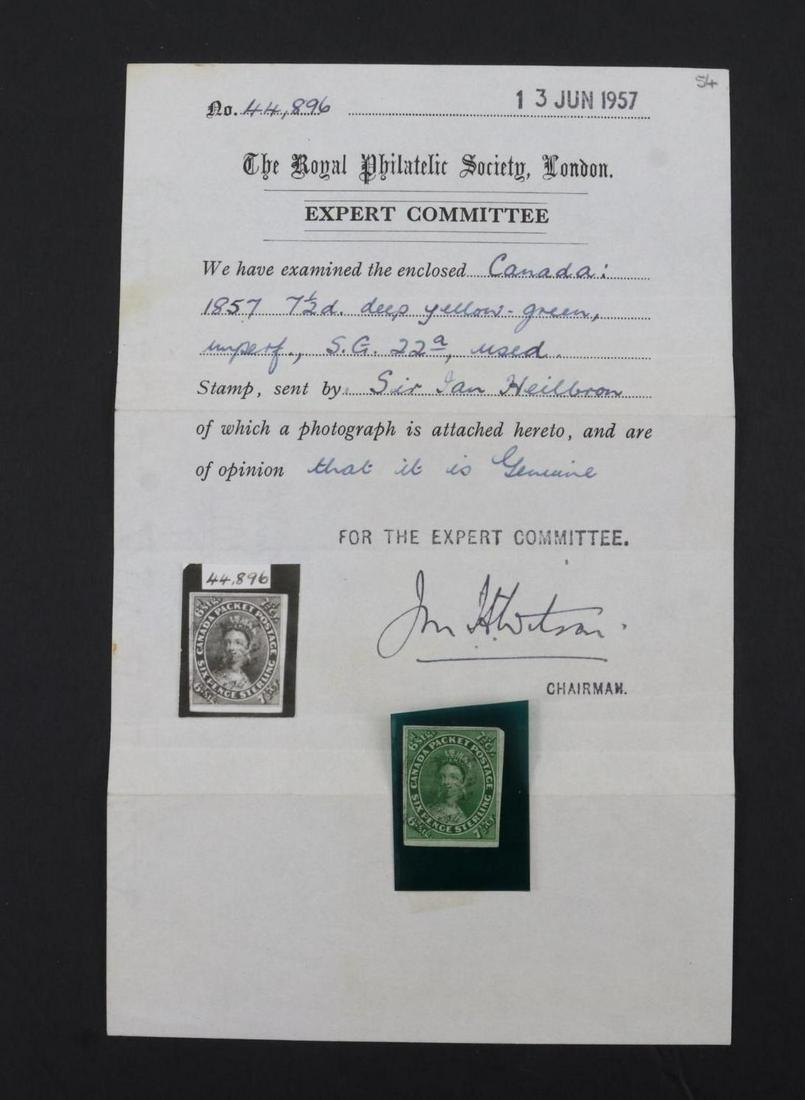 54
No. 44,896 13 JUN 1957
The Royal Philatelic Society, London.
EXPERT COMMITTEE
We have examined the enclosed Canada:
1857 7½d. deep yellow-green,
imperf., S.G. 22a, used.
Stamp, sent by Sir Ian Heilbron
of which a photograph is attached hereto, and are
of opinion that it is Genuine
FOR THE EXPERT COMMITTEE.
CHAIRMAN.
44,896
CANADA PACKET POSTAGE
SIX PENCE STERLING
CANADA PACKET POSTAGE
SIX PENCE STERLING